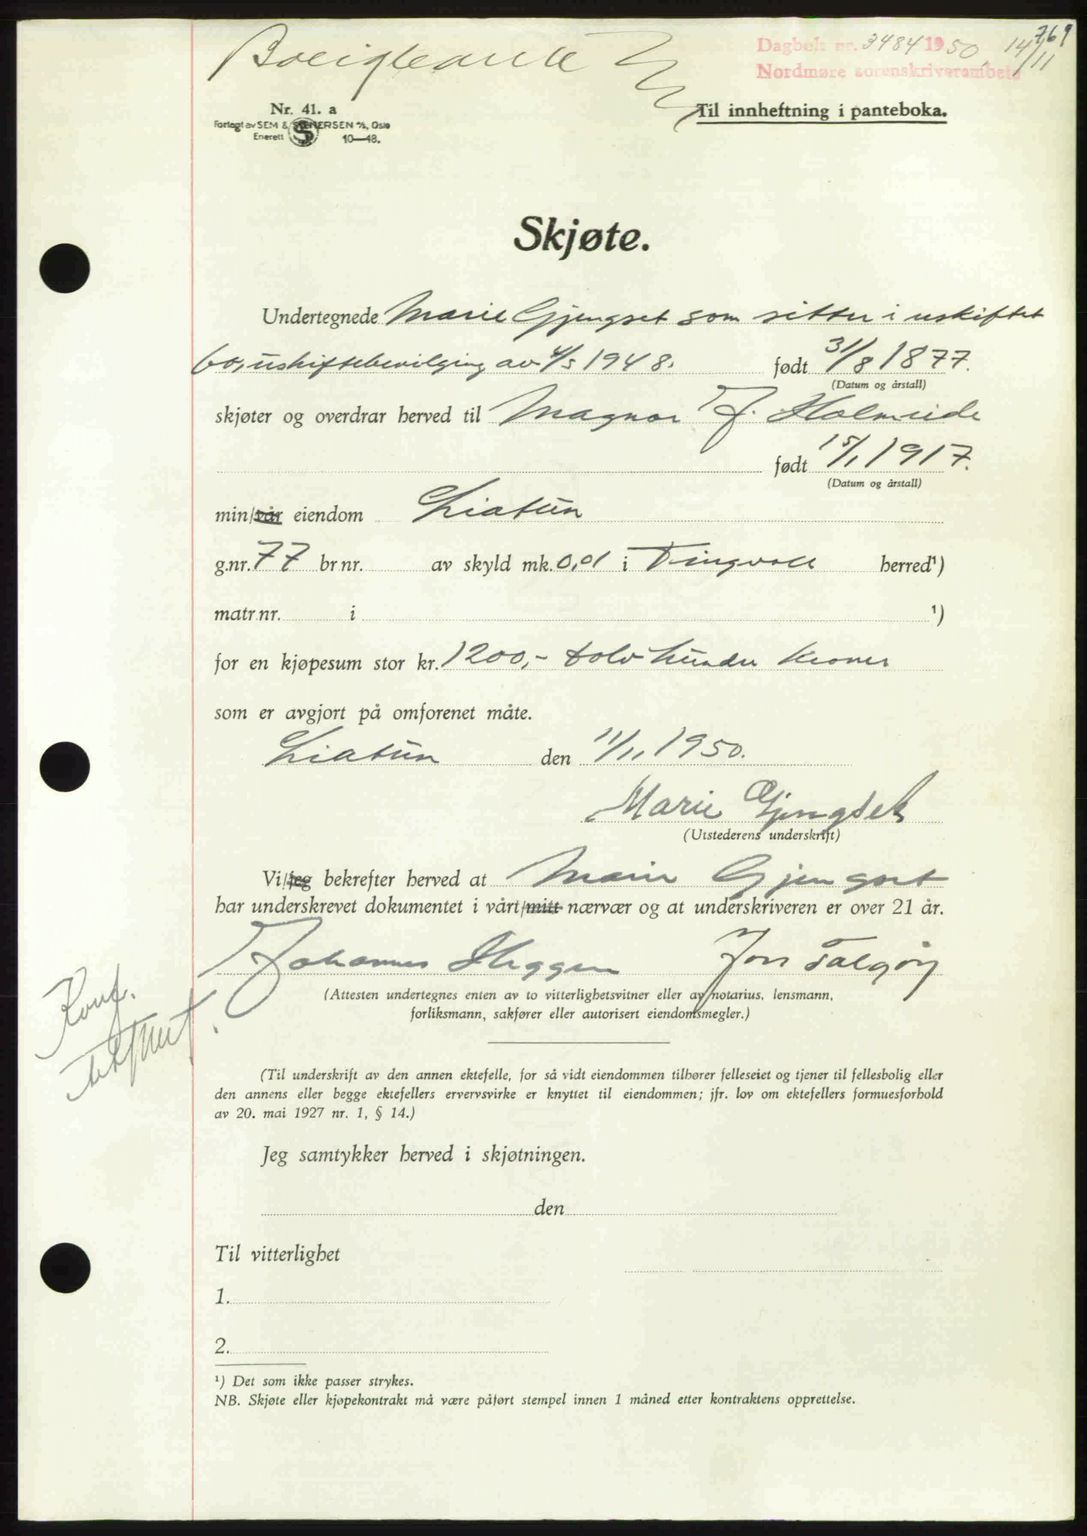 769
Dagbok nr. 3484 1950. 14/11
Nordmøre sorenskriverembete
Nr. 41. a
Forlagt av SEM & STENERSEN A/S, Oslo
Enerett 10—48.
Til innheftning i panteboka.
Skjøte.
Undertegnede Marie Gjengset som sitter i uskiftet
bo, uskiftebevilging av 4/5 1948. født 31/8 1877.
(Datum og årstall)
skjøter og overdrar herved til Magnar J. Holmeide
født 15/1 1917.
(Datum og årstall)
min/vår eiendom Liatun
g.nr. 77 br.nr. av skyld mk. 0,01 i Tingvoll herred¹)
matr.nr. i ¹)
for en kjøpesum stor kr. 1200,- tolv hundre kroner
som er avgjort på omforenet måte.
Liatun den 11/11 1950.
Marie Gjengset
(Utstederens underskrift)
Vi/jeg bekrefter herved at Marie Gjengset
har underskrevet dokumentet i vårt/mitt nærvær og at underskriveren er over 21 år.
Johannes Heggem Jon Talgøy
(Attesten undertegnes enten av to vitterlighetsvitner eller av notarius, lensmann,
forliksmann, sakfører eller autorisert eiendomsmegler.)
Konf.
(Til underskrift av den annen ektefelle, for så vidt eiendommen tilhører felleseiet og tjener til fellesbolig eller
den annens eller begge ektefellers ervervsvirke er knyttet til eiendommen; jfr. lov om ektefellers formuesforhold
av 20. mai 1927 nr. 1, § 14.)
Jeg samtykker herved i skjøtningen.
den
Til vitterlighet
1.
2.
¹) Det som ikke passer strykes.
NB. Skjøte eller kjøpekontrakt må være påført stempel innen 1 måned etter kontraktens opprettelse.